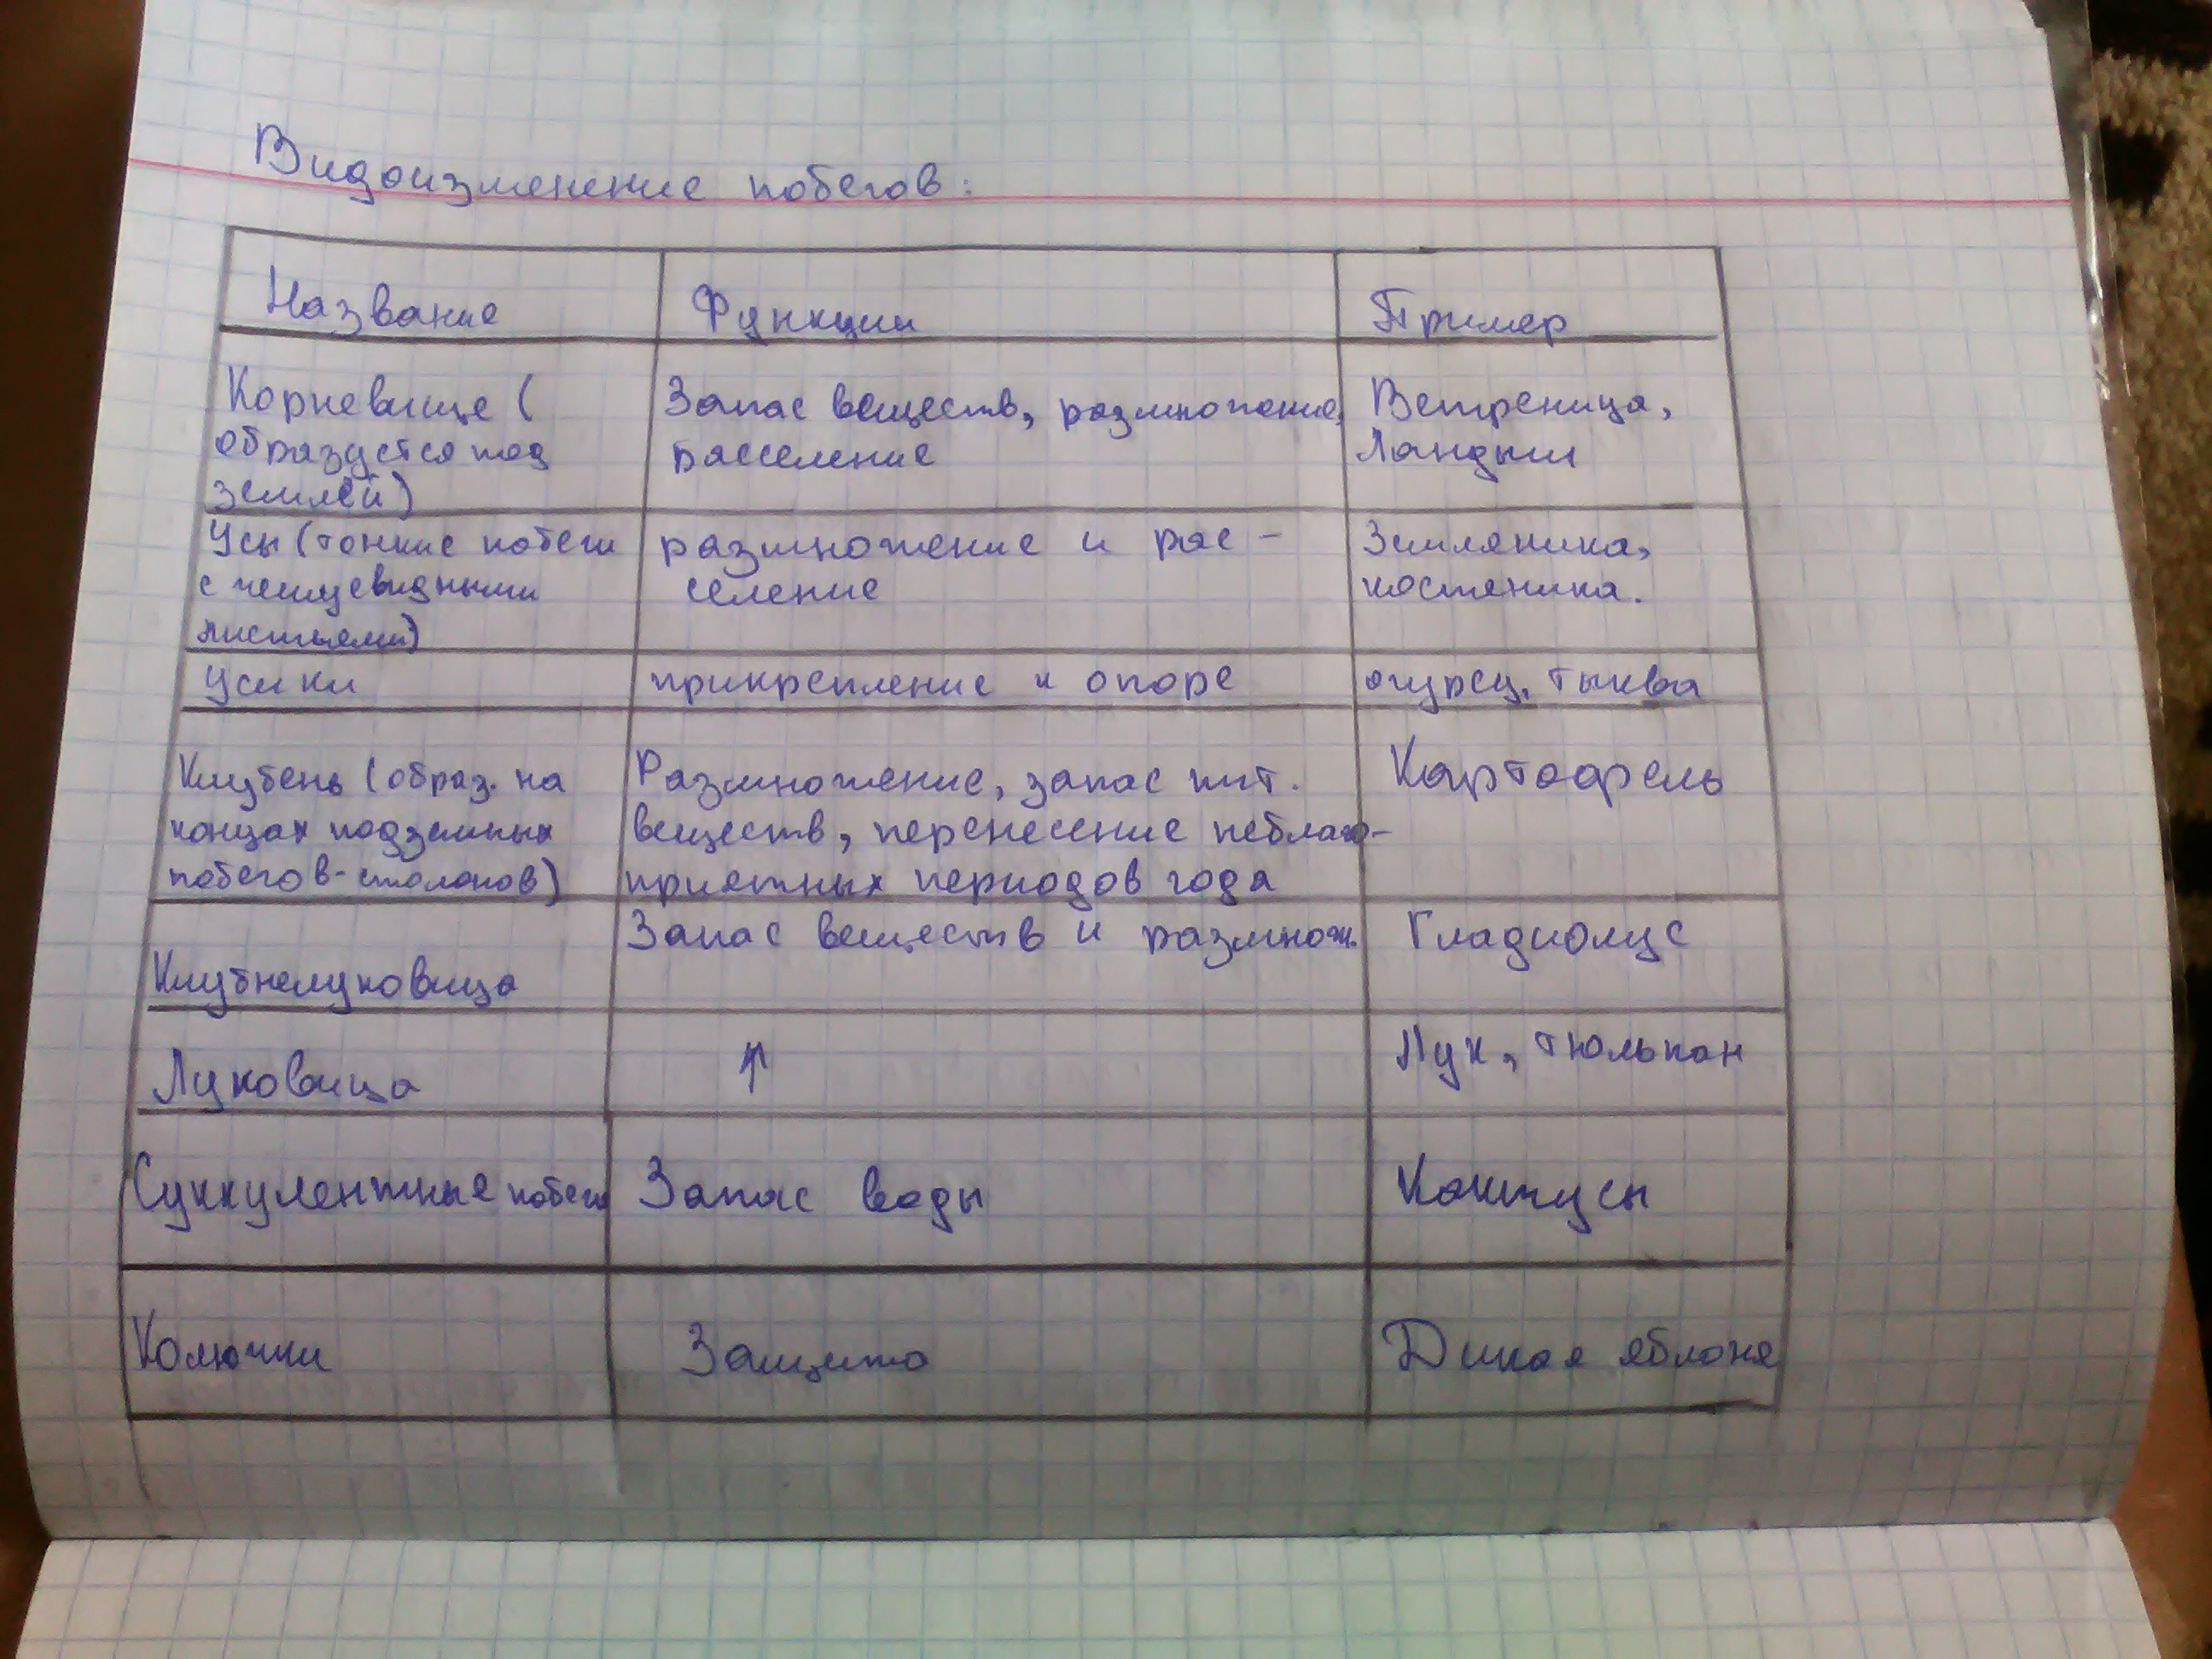 Видоизменение побегов:
Название
Функции
Пример
Корневище (
образуется под
землёй)
Запас веществ, размножение,
расселение
Ветреница,
Ландыш
Усы (тонкие побеги
с чешуевидными
листьями)
размножение и рас-
селение
Земляника,
костяника.
Усики
прикрепление к опоре
огурец, тыква
Клубень (образ. на
концах подземных
побегов-столонов)
Размножение, запас пит.
веществ, перенесение неблаго-
приятных периодов года
Картофель
Клубнелуковица
Запас веществ и размнож.
Гладиолус
Луковица
↑
Лук, тюльпан
Суккулентные побеги
Запас воды
Кактусы
Колючки
Защита
Дикая яблоня